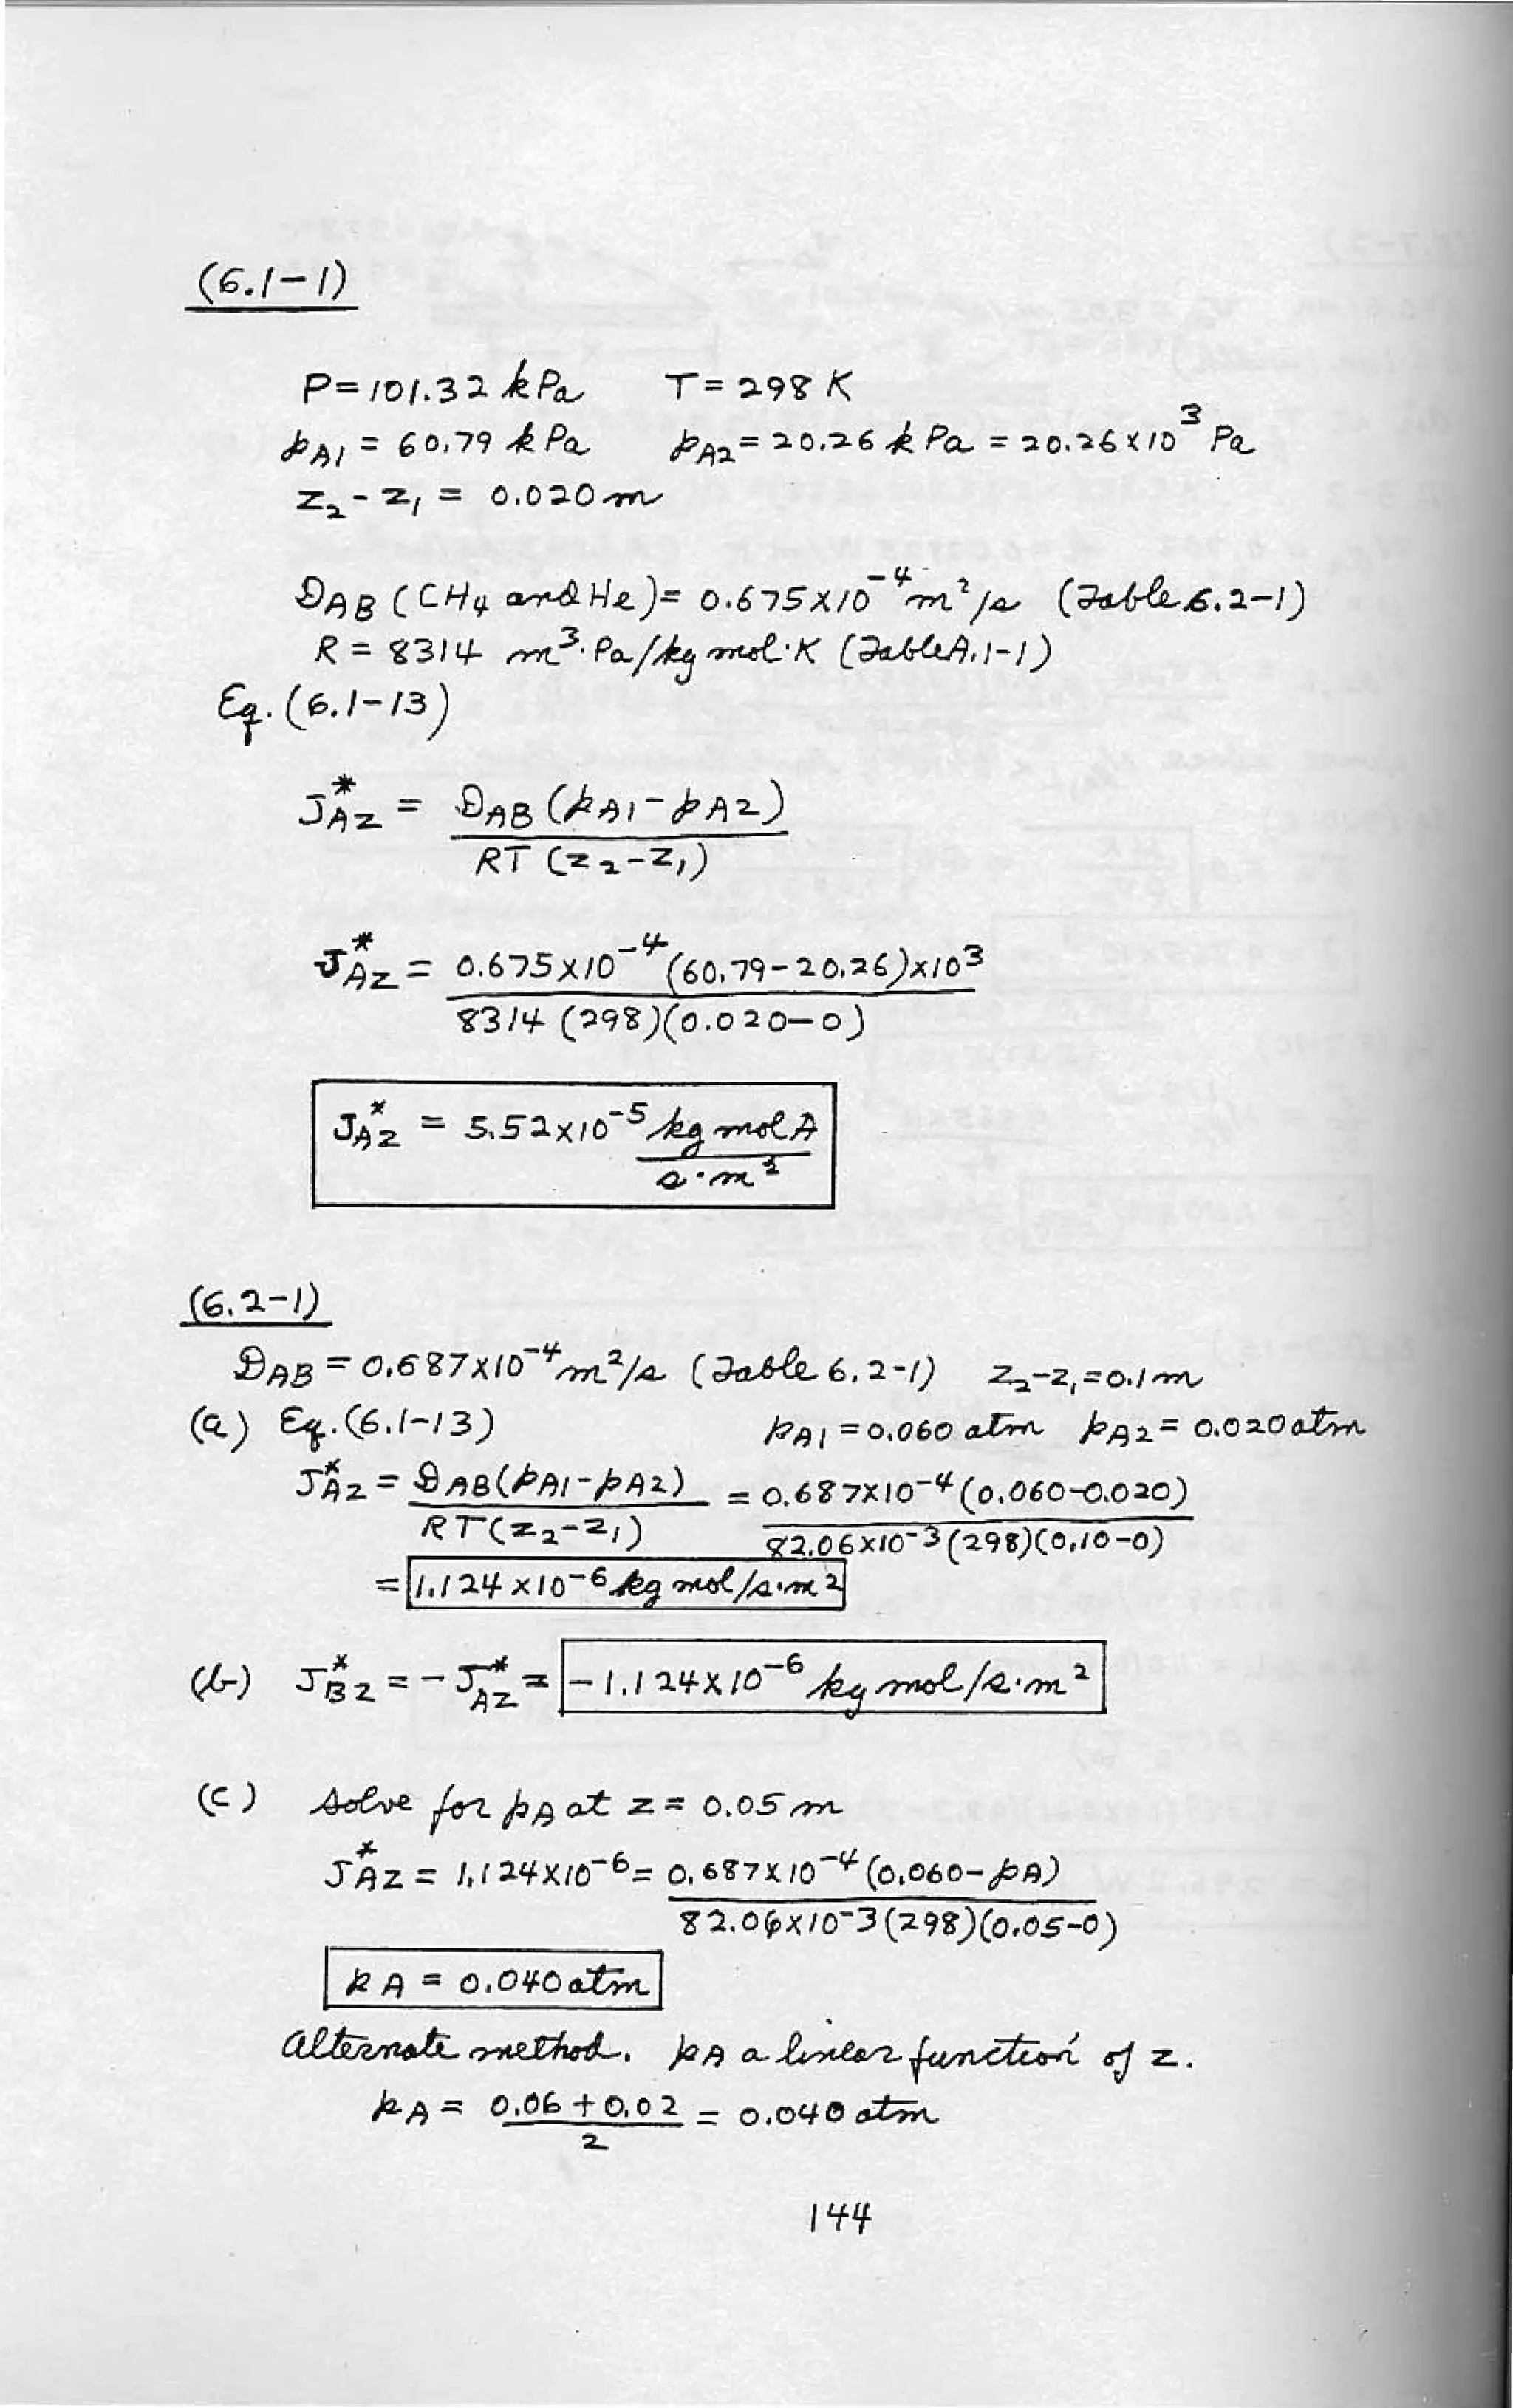 (6.1-1)
P = 101.32 kPa T = 298 K
pA1 = 60.79 kPa pA2 = 20.26 kPa = 20.26 x 10^3 Pa
z2 - z1 = 0.020 m
DAB (CH4 and He) = 0.675 x 10^-4 m^2/s (Table 6.2-1)
R = 8314 m^3·Pa/kg mol·K (Table A.1-1)
Eq. (6.1-13)
J*Az = DAB (pA1 - pA2)
RT (z2 - z1)
J*Az = 0.675 x 10^-4 (60.79 - 20.26) x 10^3
8314 (298)(0.020 - 0)
J*Az = 5.52 x 10^-5 kg mol A
s·m^2
(6.2-1)
DAB = 0.687 x 10^-4 m^2/s (Table 6.2-1) z2 - z1 = 0.1 m
(a) Eq. (6.1-13) pA1 = 0.060 atm pA2 = 0.020 atm
J*Az = DAB (pA1 - pA2) = 0.687 x 10^-4 (0.060 - 0.020)
RT (z2 - z1) 82.06 x 10^-3 (298)(0.10 - 0)
= 1.124 x 10^-6 kg mol/s·m^2
(b) J*Bz = - J*Az = -1.124 x 10^-6 kg mol/s·m^2
(c) Solve for pA at z = 0.05 m
J*Az = 1.124 x 10^-6 = 0.687 x 10^-4 (0.060 - pA)
82.06 x 10^-3 (298)(0.05 - 0)
pA = 0.040 atm
Alternate method. pA a linear function of z.
pA = 0.06 + 0.02 = 0.040 atm
2
144